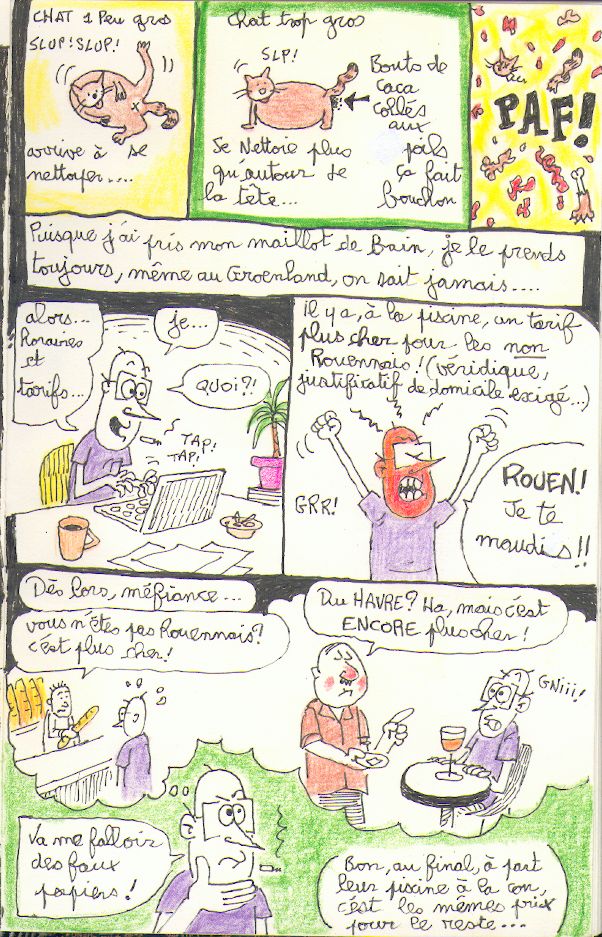 CHAT 1 Peu gros
SLUP! SLUP!
arrive à se
nettoyer....
Chat trop gros
SLP!
Se Nettoie plus
qu'autour de
la tête...
Bouts de
caca
collés
aux
poils
ça fait
bouchon
PAF!
Puisque j'ai pris mon maillot de Bain, je le prends
toujours, même au Groenland, on sait jamais....
alors...
horaires
et
tarifs...
je...
QUOI?!
TAP!
TAP!
il y a, à la piscine, un tarif
plus cher pour les non
Rouennais! (véridique,
justificatif de domicile exigé...)
GRR!
ROUEN!
Je te
maudis!!
Dès lors, méfiance...
vous n'êtes pas Rouennais?
c'est plus cher!
Du HAVRE? Ha, mais c'est
ENCORE plus cher!
GNiii!
Va me falloir
des faux
papiers!
Bon, au final, à part
leur piscine à la con,
c'est les mêmes prix
pour le reste...